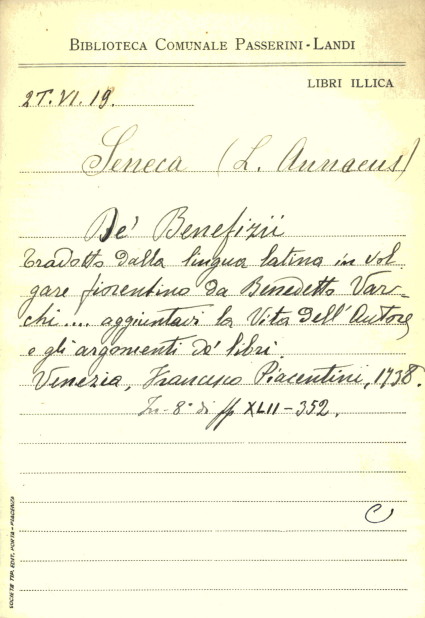 BIBLIOTECA COMUNALE PASSERINI-LANDI
LIBRI ILLICA
2T.VI.19.
Seneca (L. Annaeus)
De' Benefizii
tradotto dalla lingua latina in vol
gare fiorentino da Benedetto Var-
chi.... aggiuntavi la Vita dell'Autore
e gli argomenti de' libri.
Venezia, Francesco Piacentini, 1738.
In-8° di pp XLII-352.
C
SOCIETÀ TIP. EDIT. PORTA-PIACENZA